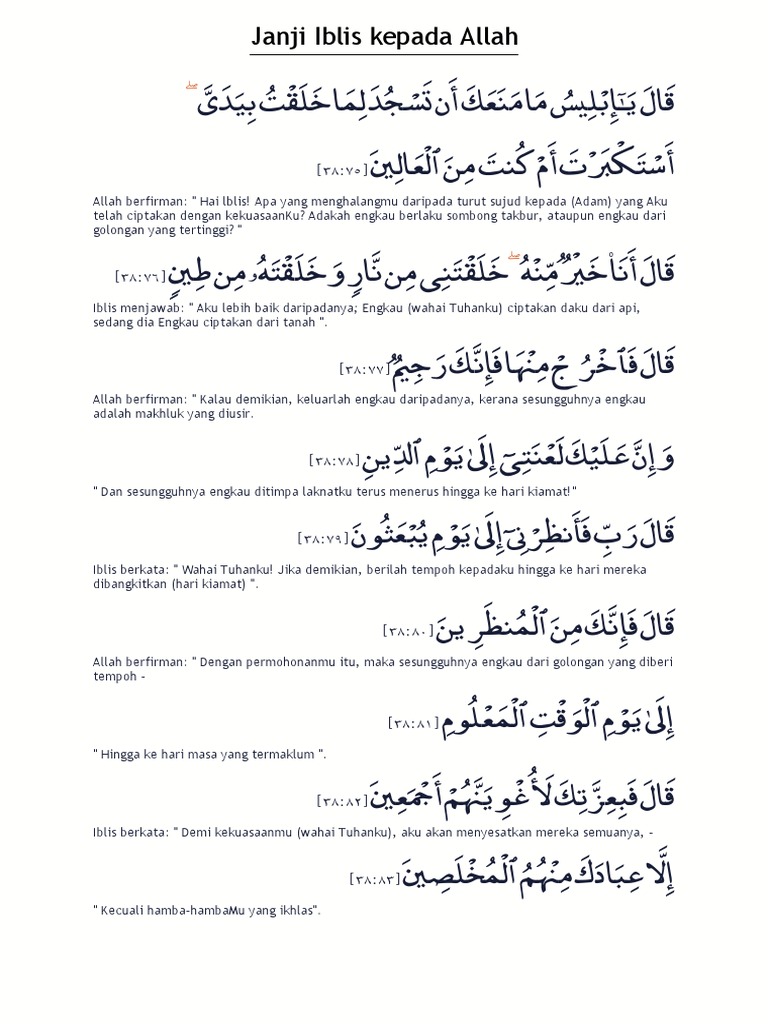 Janji Iblis kepada Allah
قَالَ يَـٰٓإِبْلِيسُ مَا مَنَعَكَ أَن تَسْجُدَ لِمَا خَلَقْتُ بِيَدَىَّ ۖ
أَسْتَكْبَرْتَ أَمْ كُنتَ مِنَ ٱلْعَالِينَ [٣٨:٧٥]
Allah berfirman: " Hai lblis! Apa yang menghalangmu daripada turut sujud kepada (Adam) yang Aku
telah ciptakan dengan kekuasaanKu? Adakah engkau berlaku sombong takbur, ataupun engkau dari
golongan yang tertinggi? "
قَالَ أَنَا۠ خَيْرٌ مِّنْهُ ۖ خَلَقْتَنِى مِن نَّارٍ وَخَلَقْتَهُۥ مِن طِينٍ [٣٨:٧٦]
Iblis menjawab: " Aku lebih baik daripadanya; Engkau (wahai Tuhanku) ciptakan daku dari api,
sedang dia Engkau ciptakan dari tanah ".
قَالَ فَٱخْرُجْ مِنْهَا فَإِنَّكَ رَجِيمٌ [٣٨:٧٧]
Allah berfirman: " Kalau demikian, keluarlah engkau daripadanya, kerana sesungguhnya engkau
adalah makhluk yang diusir.
وَإِنَّ عَلَيْكَ لَعْنَتِىٓ إِلَىٰ يَوْمِ ٱلدِّينِ [٣٨:٧٨]
" Dan sesungguhnya engkau ditimpa laknatku terus menerus hingga ke hari kiamat!"
قَالَ رَبِّ فَأَنظِرْنِىٓ إِلَىٰ يَوْمِ يُبْعَثُونَ [٣٨:٧٩]
Iblis berkata: " Wahai Tuhanku! Jika demikian, berilah tempoh kepadaku hingga ke hari mereka
dibangkitkan (hari kiamat) ".
قَالَ فَإِنَّكَ مِنَ ٱلْمُنظَرِينَ [٣٨:٨٠]
Allah berfirman: " Dengan permohonanmu itu, maka sesungguhnya engkau dari golongan yang diberi
tempoh -
إِلَىٰ يَوْمِ ٱلْوَقْتِ ٱلْمَعْلُومِ [٣٨:٨١]
" Hingga ke hari masa yang termaklum ".
قَالَ فَبِعِزَّتِكَ لَأُغْوِيَنَّهُمْ أَجْمَعِينَ [٣٨:٨٢]
Iblis berkata: " Demi kekuasaanmu (wahai Tuhanku), aku akan menyesatkan mereka semuanya, -
إِلَّا عِبَادَكَ مِنْهُمُ ٱلْمُخْلَصِينَ [٣٨:٨٣]
" Kecuali hamba-hambaMu yang ikhlas".